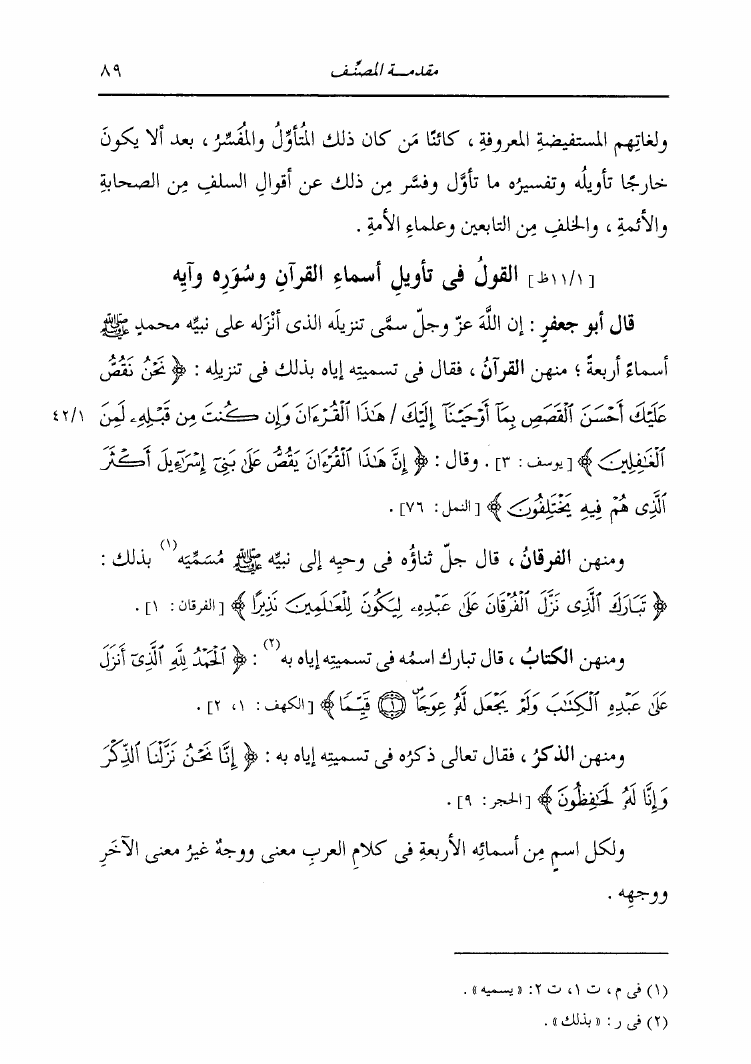 مقدمـة المصنِّف ٨٩
ولغاتِهم المستفيضةِ المعروفةِ ، كائنًا مَن كان ذلك المُتأوِّلُ والمُفَسِّرُ ، بعد ألا يكونَ
خارجًا تأويلُه وتفسيرُه ما تأوَّل وفسَّر مِن ذلك عن أقوالِ السلفِ مِن الصحابةِ
والأئمةِ ، والخلفِ مِن التابعين وعلماءِ الأمةِ .
[١١/١ظ] القولُ فى تأويلِ أسماءِ القرآنِ وسُوَرِه وآيِه
قال أبو جعفرٍ : إن اللَّهَ عزّ وجلّ سمَّى تنزيلَه الذى أنْزَله على نبيِّه محمدٍ ﷺ
أسماءً أربعةً ؛ منهن القرآنُ ، فقال فى تسميتِه إياه بذلك فى تنزيلِه : ﴿ نَحْنُ نَقُصُّ
عَلَيْكَ أَحْسَنَ ٱلْقَصَصِ بِمَآ أَوْحَيْنَآ إِلَيْكَ / هَـٰذَا ٱلْقُرْءَانَ وَإِن كُنتَ مِن قَبْلِهِۦ لَمِنَ ٤٢/١
ٱلْغَـٰفِلِينَ ﴾ [يوسف : ٣] . وقال : ﴿ إِنَّ هَـٰذَا ٱلْقُرْءَانَ يَقُصُّ عَلَىٰ بَنِىٓ إِسْرَٰٓءِيلَ أَكْثَرَ
ٱلَّذِى هُمْ فِيهِ يَخْتَلِفُونَ ﴾ [النمل : ٧٦] .
ومنهن الفرقانُ ، قال جلّ ثناؤُه فى وحيِه إلى نبيِّه ﷺ مُسَمِّيَه(١) بذلك :
﴿ تَبَارَكَ ٱلَّذِى نَزَّلَ ٱلْفُرْقَانَ عَلَىٰ عَبْدِهِۦ لِيَكُونَ لِلْعَـٰلَمِينَ نَذِيرًا ﴾ [الفرقان : ١] .
ومنهن الكتابُ ، قال تبارك اسمُه فى تسميتِه إياه به(٢) : ﴿ ٱلْحَمْدُ لِلَّهِ ٱلَّذِىٓ أَنزَلَ
عَلَىٰ عَبْدِهِ ٱلْكِتَـٰبَ وَلَمْ يَجْعَل لَّهُۥ عِوَجَاۜ ۝١ قَيِّمًا ﴾ [الكهف : ١، ٢] .
ومنهن الذكرُ ، فقال تعالى ذكرُه فى تسميتِه إياه به : ﴿ إِنَّا نَحْنُ نَزَّلْنَا ٱلذِّكْرَ
وَإِنَّا لَهُۥ لَحَـٰفِظُونَ ﴾ [الحجر : ٩] .
ولكل اسمٍ مِن أسمائِه الأربعةِ فى كلامِ العربِ معنى ووجهٌ غيرُ معنى الآخَرِ
ووجهِه .
(١) فى م ، ت ١، ت ٢: « يسميه » .
(٢) فى ر : « بذلك » .